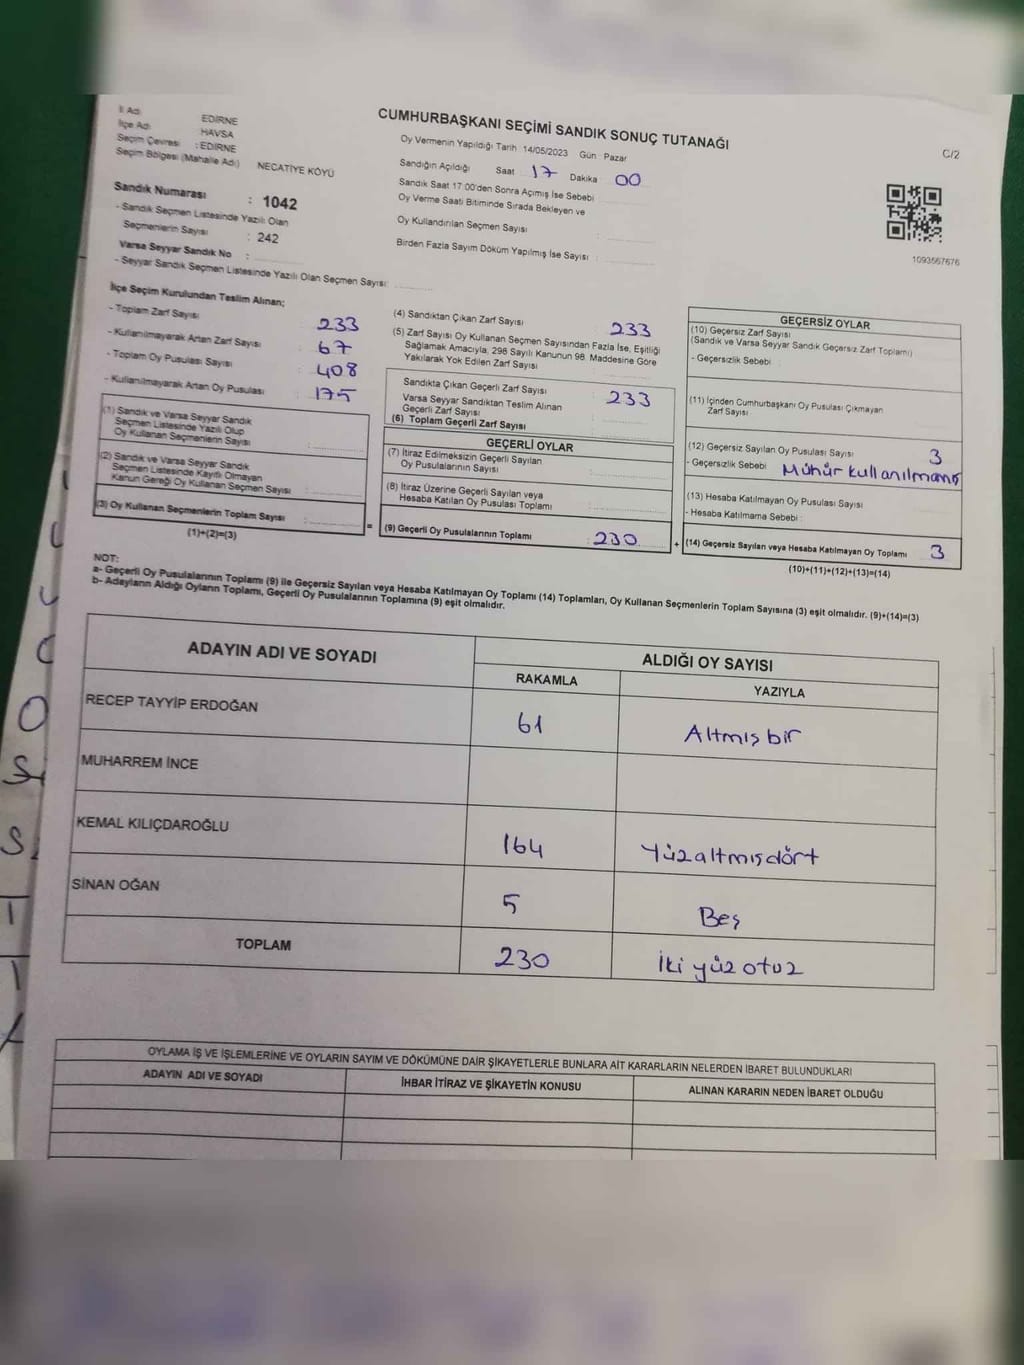 CUMHURBAŞKANI SEÇİMİ SANDIK SONUÇ TUTANAĞI
C/2
İl Adı : EDİRNE
İlçe Adı : HAVSA
Seçim Çevresi : EDİRNE
Seçim Bölgesi (Mahalle Adı) NECATİYE KÖYÜ
Sandık Numarası : 1042
- Sandık Seçmen Listesinde Yazılı Olan
Seçmenlerin Sayısı : 242
Varsa Seyyar Sandık No :
- Seyyar Sandık Seçmen Listesinde Yazılı Olan Seçmen Sayısı:
Oy Vermenin Yapıldığı Tarih 14/05/2023 Gün Pazar
Sandığın Açıldığı Saat 17 Dakika 00
Sandık Saat 17:00'den Sonra Açımış İse Sebebi
Oy Verme Saati Bitiminde Sırada Bekleyen ve
Oy Kullandırılan Seçmen Sayısı :
Birden Fazla Sayım Döküm Yapılmış İse Sayısı :
1093567676
İlçe Seçim Kurulundan Teslim Alınan;
- Toplam Zarf Sayısı : 233
- Kullanılmayarak Artan Zarf Sayısı : 67
- Toplam Oy Pusulası Sayısı : 408
- Kullanılmayarak Artan Oy Pusulası : 175
(1) Sandık ve Varsa Seyyar Sandık
Seçmen Listesinde Yazılı Olup
Oy Kullanan Seçmenlerin Sayısı :
(2) Sandık ve Varsa Seyyar Sandık
Seçmen Listesinde Kayıtlı Olmayan
Kanun Gereği Oy Kullanan Seçmen Sayısı :
(3) Oy Kullanan Seçmenlerin Toplam Sayısı :
(1)+(2)=(3)
(4) Sandıktan Çıkan Zarf Sayısı : 233
(5) Zarf Sayısı Oy Kullanan Seçmen Sayısından Fazla İse, Eşitliği
Sağlamak Amacıyla, 298 Sayılı Kanunun 98. Maddesine Göre
Yakılarak Yok Edilen Zarf Sayısı
Sandıkta Çıkan Geçerli Zarf Sayısı : 233
Varsa Seyyar Sandıktan Teslim Alınan
Geçerli Zarf Sayısı
(6) Toplam Geçerli Zarf Sayısı
GEÇERLİ OYLAR
(7) İtiraz Edilmeksizin Geçerli Sayılan
Oy Pusulalarının Sayısı
(8) İtiraz Üzerine Geçerli Sayılan veya
Hesaba Katılan Oy Pusulası Toplamı
= (9) Geçerli Oy Pusulalarının Toplamı : 230
GEÇERSİZ OYLAR
(10) Geçersiz Zarf Sayısı
(Sandık ve Varsa Seyyar Sandık Geçersiz Zarf Toplamı)
- Geçersizlik Sebebi :
(11) İçinden Cumhurbaşkanı Oy Pusulası Çıkmayan
Zarf Sayısı
(12) Geçersiz Sayılan Oy Pusulası Sayısı 3
- Geçersizlik Sebebi
(13) Hesaba Katılmayan Oy Pusulası Sayısı
- Hesaba Katılmama Sebebi :
+ (14) Geçersiz Sayılan veya Hesaba Katılmayan Oy Toplamı 3
(10)+(11)+(12)+(13)=(14)
NOT:
a- Geçerli Oy Pusulalarının Toplamı (9) ile Geçersiz Sayılan veya Hesaba Katılmayan Oy Toplamı (14) Toplamları, Oy Kullanan Seçmenlerin Toplam Sayısına (3) eşit olmalıdır. (9)+(14)=(3)
b- Adayların Aldığı Oyların Toplamı, Geçerli Oy Pusulalarının Toplamına (9) eşit olmalıdır.
ADAYIN ADI VE SOYADI ALDIĞI OY SAYISI
RAKAMLA YAZIYLA
RECEP TAYYİP ERDOĞAN 61 Altmışbir
MUHARREM İNCE
KEMAL KILIÇDAROĞLU 164 Yüzaltmışdört
SİNAN OĞAN 5 Beş
TOPLAM 230 İkiyüzotuz
OYLAMA İŞ VE İŞLEMLERİNE VE OYLARIN SAYIM VE DÖKÜMÜNE DAİR ŞİKAYETLERLE BUNLARA AİT KARARLARIN NELERDEN İBARET BULUNDUKLARI
ADAYIN ADI VE SOYADI İHBAR İTİRAZ VE ŞİKAYETİN KONUSU ALINAN KARARIN NEDEN İBARET OLDUĞU